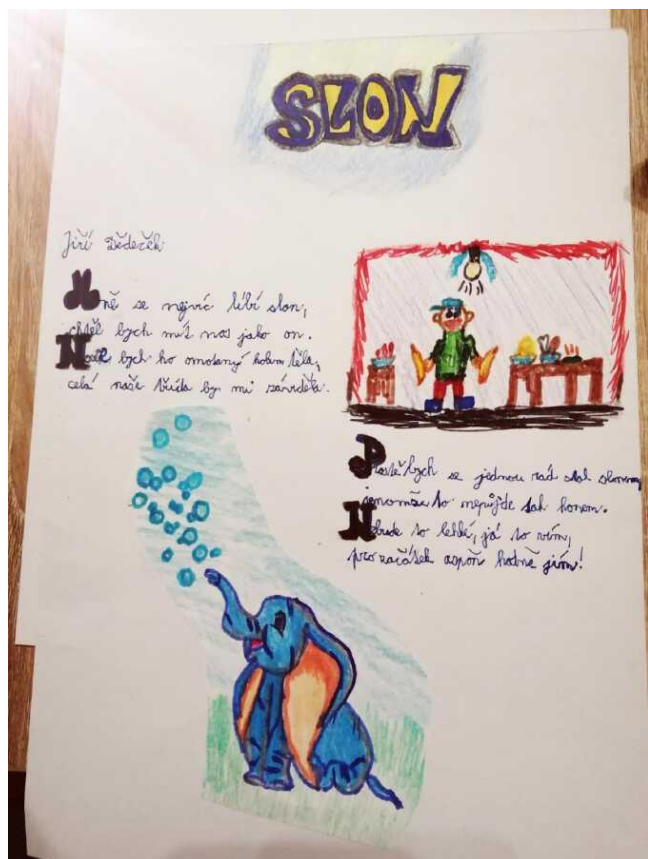 SLON
Jiří Dědeček
Mně se nejvíc líbí slon,
chtěl bych mít nos jako on.
Nosil bych ho omotaný kolem těla,
celá naše třída by mi záviděla.
Prostě bych se jednou rád stal slonem,
jenomže to nepůjde tak honem.
Nebude to lehké, já to vím,
pro začátek aspoň hodně jím!